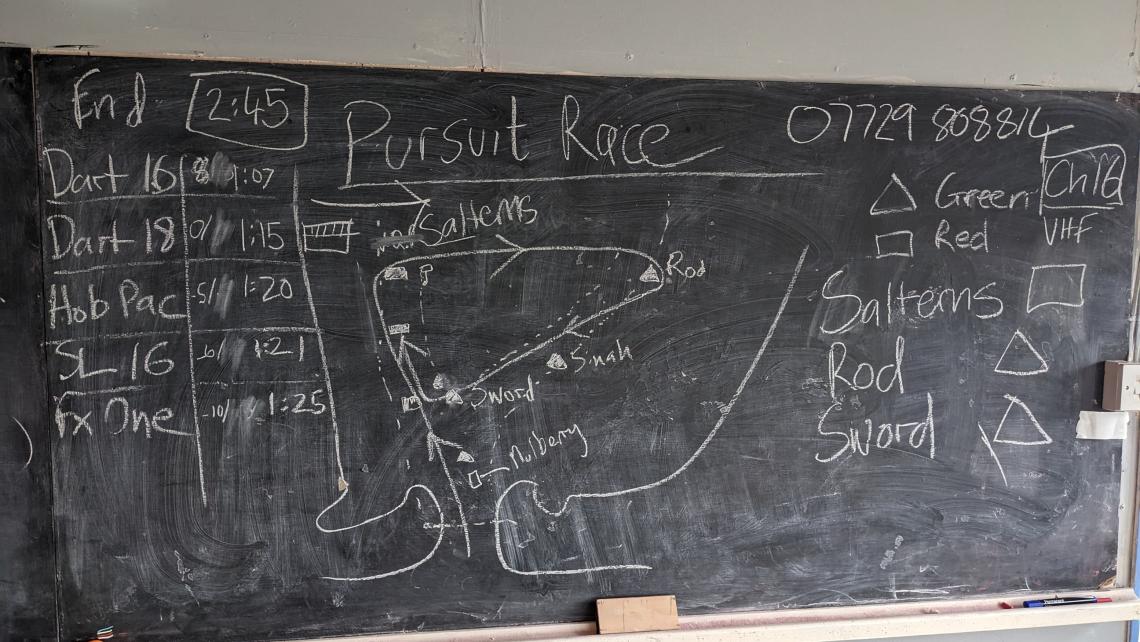 End 2:45
Pursuit Race
07729 808814
Dart 16 8/ 1:07
Dart 18 0/ 1:15
Hob Pac -5/ 1:20
SL 16 -6/ 1:21
Fx One -10/ 1:25
Salterns
Rod
Snah
Sword
Mulbery
Green
Red
Ch 10
VHF
Salterns
Rod
Sword